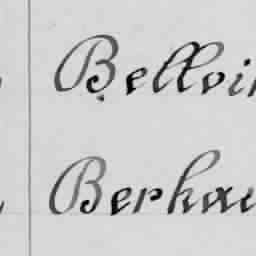 Belloi
Berhau